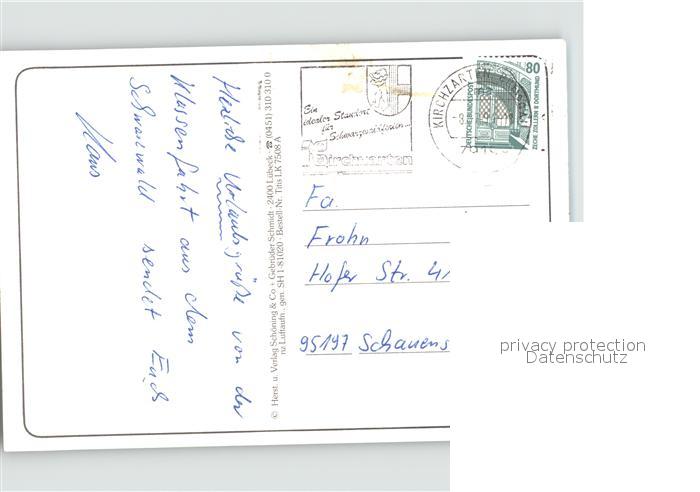 Herzliche Urlaubsgrüße von der
Klassenfahrt aus dem
Schwarzwald sendet Euch
Klaus
© Herst. u. Verlag Schöning & Co + Gebrüder Schmidt · 2400 Lübeck · ☎ (0451) 310 310 0
nz Luftaufn., gen. SH 1-81020 · Bestell-Nr. Titis LK 7508 A
Ein
idealer Standort
für
Schwarzwaldferien...
Kirchzarten
KIRCHZARTEN
80
DEUTSCHE BUNDESPOST
ZECHE ZOLLERN II DORTMUND
Fa.
Frohn
Hofer Str.
95197 Schauens
privacy protection
Datenschutz